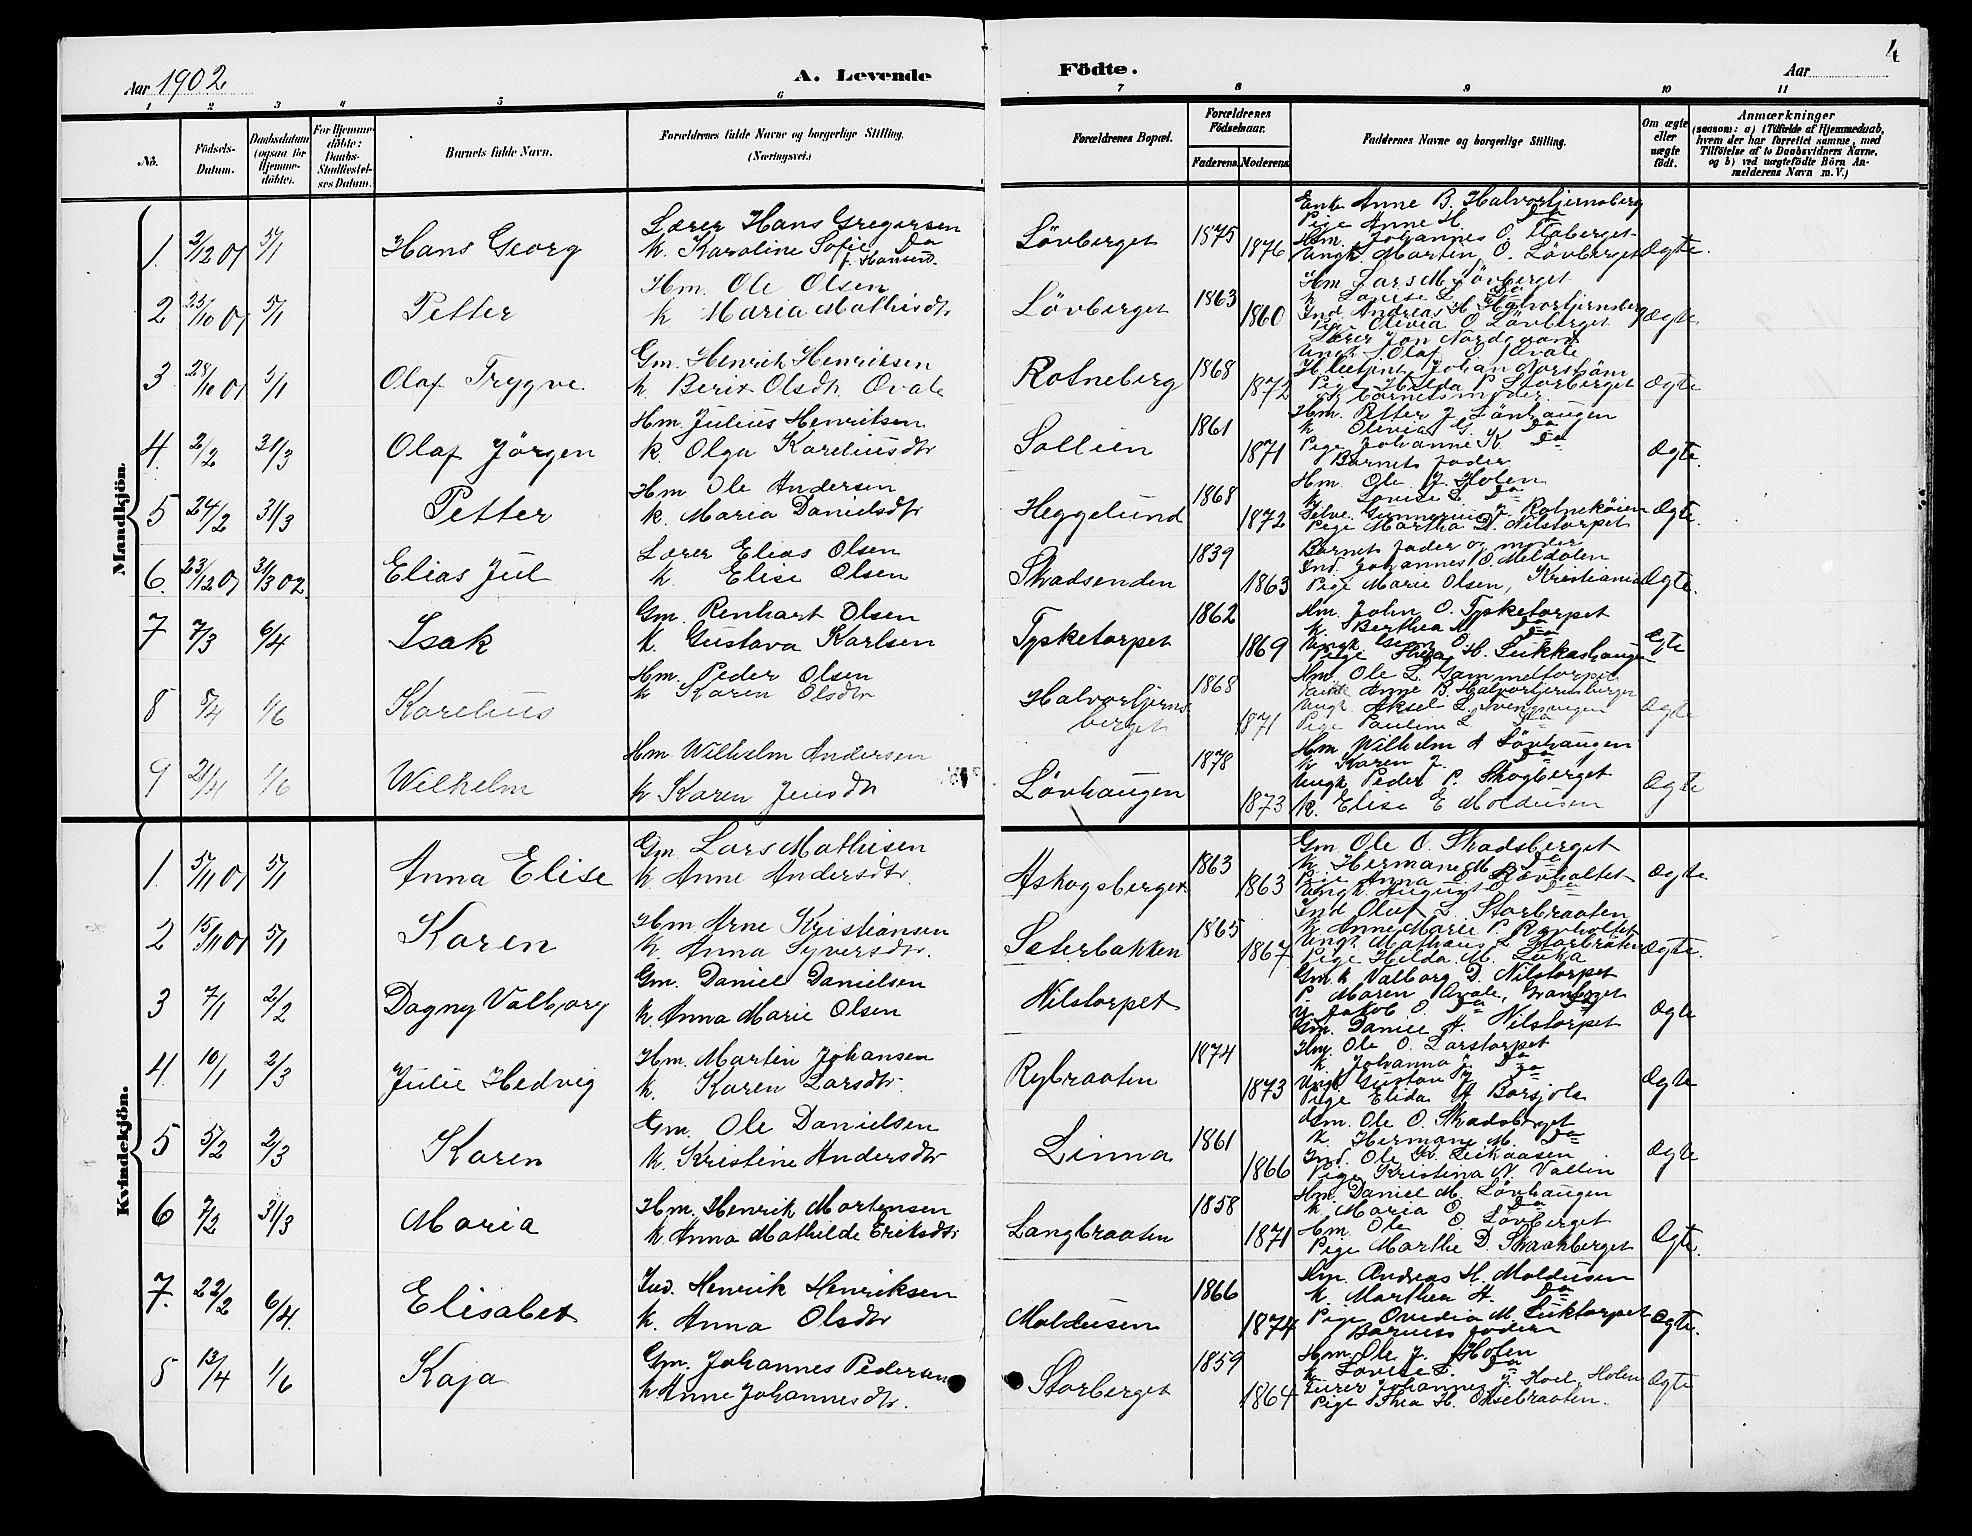 4
Aar 1902
A. Levende
Födte.
Aar
1 2 3 4 5 6 7 8 9 10 11
No.
Födsels-Datum.
Daabsdatum (ogsaa for Hjemme-döbte).
For Hjemme-döbte: Daabs-Stadfæstel-ses Datum.
Barnets fulde Navn.
Forældrenes fulde Navne og borgerlige Stilling. (Næringsvei.)
Forældrenes Bopæl.
Forældrenes Födselsaar.
Faderens. Moderens.
Faddernes Navne og borgerlige Stilling.
Om ægte eller uægte født.
Anmærkninger
(saasom: a) i Tilfælde af Hjemmedaab, hvem der har forrettet samme, med Tilföielse af to Daabsvidners Navne, og b) ved uægtefödte Börn An-melderens Navn m. V.)
Mandkjön.
1. 2/12 01 5/1 Hans Georg
Lærer Hans Gregersen
k. Karoline Sofie Do f. Hansen.
Lövberget 1875 1876
Enk. Anne B. Halvortjernsberg
Pige Anne H. Do
Hm. Johannes O.
Ungk. Morten O. Lövberget
Ægte.
2 23/10 01 5/1 Petter
Hm. Ole Olsen
k Maria Mathisdtr
Lövberget 1863 1860
Hm Lars M Lövberget
k Lovise L. Do
Ind. Andreas H Halvortjernsberg
Pige Olivia O Lövberget
Ægte
3 28/10 01 5/1 Olaf Trygve
Gm. Henrik Henriksen
k. Berit Olsdtr. Ovale
Rotneberg 1868 1872
Lærer Jon Nordgaard
Ungk. Olaf O. Ovale
Johan Norström
Pige Hilda P Storberget
og barnets moder.
Ægte
4. 2/2 31/3 Olaf Jörgen
Hm. Julius Henriksen
k. Olga Kareliusdtr
Sollien 1861 1871
Hm. Petter J Lönhaugen
k Olivia G. Do
Pige Johanne K. Do
Barnets fader
Ægte.
5 24/2 31/3 Petter
Hm Ole Andersen
k. Maria Danielsdtr
Heggelund 1868 1872
Hm. Ole J. Holen
k Lovise L. Do
Selve. Gunnerius J Rotneköien
Pige Martha D. Nilstorpet
Ægte.
6. 23/12 01 31/3 02. Elias Jul
Lærer Elias Olsen
k. Elise Olsen
Skadsenden 1839 1863
Barnets fader og moder
Ind. Johannes O. Meldalen
Pige Marie Olsen, Kristiania
Ægte.
7 7/3 6/4 Isak
Gm. Renhart Olsen
k. Gustava Karlsen
Tysketorpet 1862 1869
Hm. John O. Tysketorpet
k. Berthea M Do
Ungk. Do
Pige H. Lukkashaugen
Ægte
8 8/4 1/6 Karelius
Hm. Peder Olsen
k Karen Olsdtr
Halvortjerns berget 1868 1871
Hm. Ole L. Gammeltorpet
Anne B. Halvortjernsberget
Ungk. Aksel L.
Pige Pauline L Do
Ægte
9 21/4 1/6 Wilhelm
Hm Wilhelm Andersen
k Karen Jensdtr
Lövhaugen 1878 1873
Hm. Wilhelm A Lövhaugen
k Karen J. Do
Ungk Peder P. Skogberget
k. Elise E Moldusen
Ægte
Kvindekjön.
1. 5/11 01 5/1 Anna Elise
Gm. Lars Mathisen
k Anne Andersdtr.
Askogsberget 1863 1863
Gm Ole O. Skadsberget
k. Hermane M. Do
Pige Anna O Rævholtet
Ungk. August O. Do
Ægte
2 15/11 01 5/1 Karen
Hm Arne Kristiansen
k. Anna Syversdtr.
Seterbakken 1865 1867
Ind Oluf L. Storbraaten
k Anne Marie P Rævholtet
Ungk. Mathæus L Storbråten
Pige Hilda M. Lüka
Ægte.
3 7/1 2/2 Dagny Valborg
Gm. Daniel Danielsen
k. Anna Marie Olsen
Nilstorpet
Gmk Valborg D. Nilstorpet
P. Maren Ovale, Granberget
U Jakob O. Do Do
Gm. Daniel H. Nilstorpet
Ægte
4. 10/1 2/3 Julie Hedvig
Hm. Martin Johansen
k. Karen Larsdtr.
Rybraaten 1874 1873
Hm. Ole O. Larstorpet
k. Johanna J Do
Ungk. Gustav J Do
Pige Elida A Borsjola
Ægte
5 5/2 2/3 Karen
Gm. Ole Danielsen
k. Kristine Andersdtr
Linna 1861 1866
Gm. Ole O. Skadsberget
k. Hermane M. Do
Ind. Ole K. Leikaasen
Pige Kristina N. Vallin
Ægte
6 7/2 31/3 Maria
Hm. Henrik Mortensen
k. Anna Mathilde Eriksdtr
Langbraaten 1858 1871
Hm. Daniel M. Lövhaugen
k Maria O. Do
Hm Ole O. Lövberget
Pige Marthe D. Skaanberget
Ægte.
7. 22/2 6/4. Elisabet
Ind. Henrik Henriksen
k. Anna Olsdtr
Moldusen 1866 1874
Hm. Andreas H. Moldusen
k. Marthea H. Do
Pige Ovedia M. Lüktorpet
Barnets fader
Ægte.
8 13/4 1/6 Kaja
Gm. Johannes Pedersen
k Anne Johannesdtr.
Storberget 1859 1864
Hm. Ole J. Holen
k Lovise L. Do
Johannes J. Hoel, Holen
Pige Thea H. Oksebraaten.
Ægte